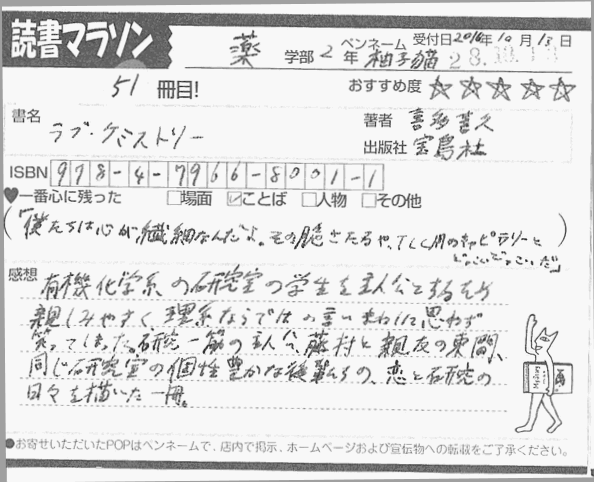 読書マラソン
薬 学部 2 年 ペンネーム 柚子猫 受付日 2016年 10月 13日
51 冊目!
おすすめ度 ☆☆☆☆☆
書名 ラブ・ケミストリー
著者 喜多喜久
出版社 宝島社
ISBN 978-4-7966-8001-1
♥一番心に残った □場面 ☑ことば □人物 □その他
(「僕たちは心が繊細なんだよ。その脆さたるや、TLC用のキャピラリーと
どっこいどっこいだ」)
感想 有機化学系の研究室の学生を主人公とするため
親しみやすく、理系ならではの言いまわしに思わず
笑ってしまった。研究一筋の主人公、藤村と親友の東間、
同じ研究室の個性豊かな後輩たちの、恋と研究の
日々を描いた一冊。
●お寄せいただいたPOPはペンネームで、店内で掲示、ホームページおよび宣伝物への転載をご了承ください。